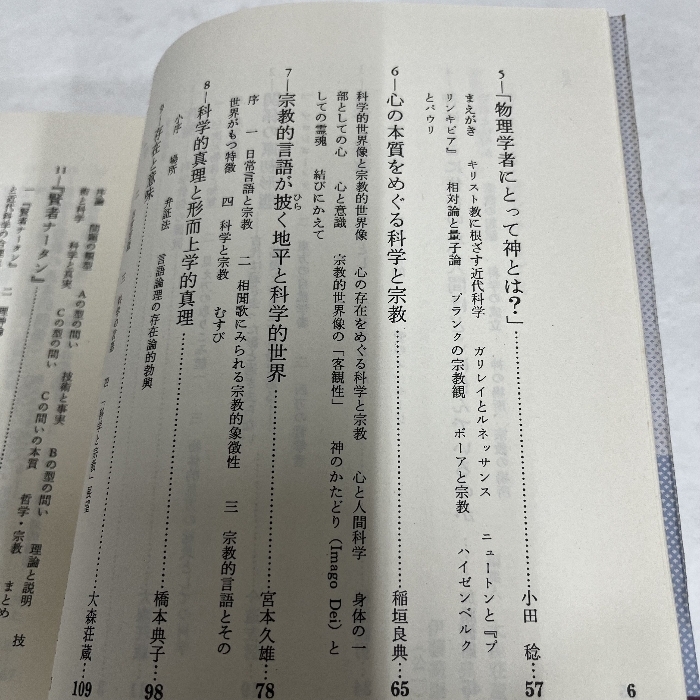 5―「物理学者にとって神とは?」……小田 稔…57
まえがき キリスト教に根ざす近代科学 ガリレイとルネッサンス ニュートンと『プ
リンキピア』 相対論と量子論 プランクの宗教観 ボーアと宗教 ハイゼンベルク
とパウリ
6―心の本質をめぐる科学と宗教……稲垣良典…65
科学的世界像と宗教的世界像 心の存在をめぐる科学と宗教 心と人間科学 身体の一
部としての心 心と意識 宗教的世界像の「客観性」 神のかたどり(Imago Dei)と
しての霊魂 結びにかえて
7―宗教的言語が披く地平と科学的世界……宮本久雄…78
ひら
序 一 日常言語と宗教 二 相聞歌にみられる宗教的象徴性 三 宗教的言語とその
世界がもつ特徴 四 科学と宗教 むすび
8―科学的真理と形而上学的真理……橋本典子…98
小序 場所 弁証法 言語論理の存在論的勃興
9―存在と意味……大森荘蔵…109
6
11―『賢者ナータン』
序論 問題の類型 Aの型の問い 技術と事実 Bの型の問い 理論と説明 技
術と科学 科学と真実 Cの型の問い Cの問いの本質 哲学・宗教 まとめ
一 『賢者ナータン』